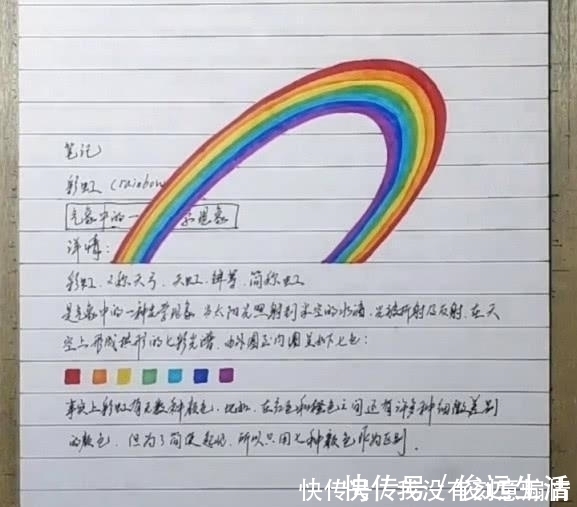 笔记
彩虹 (rainbow
气象中的一 学现象
详情:
彩虹,又称天弓、天虹、绛等,简称虹
是气象中的一种光学现象,当太阳光照射到半空的水滴,光被折射及反射,在天
空上形成拱形的七彩光谱,由外圈至内圈呈如下七色:
事实上彩虹有无数种颜色,比如,在红色和橙色之间还有许多种细微差别
的颜色,但为了简便起见,所以只用七种颜色作为区别.
快传号 / 俊远生活
快传号